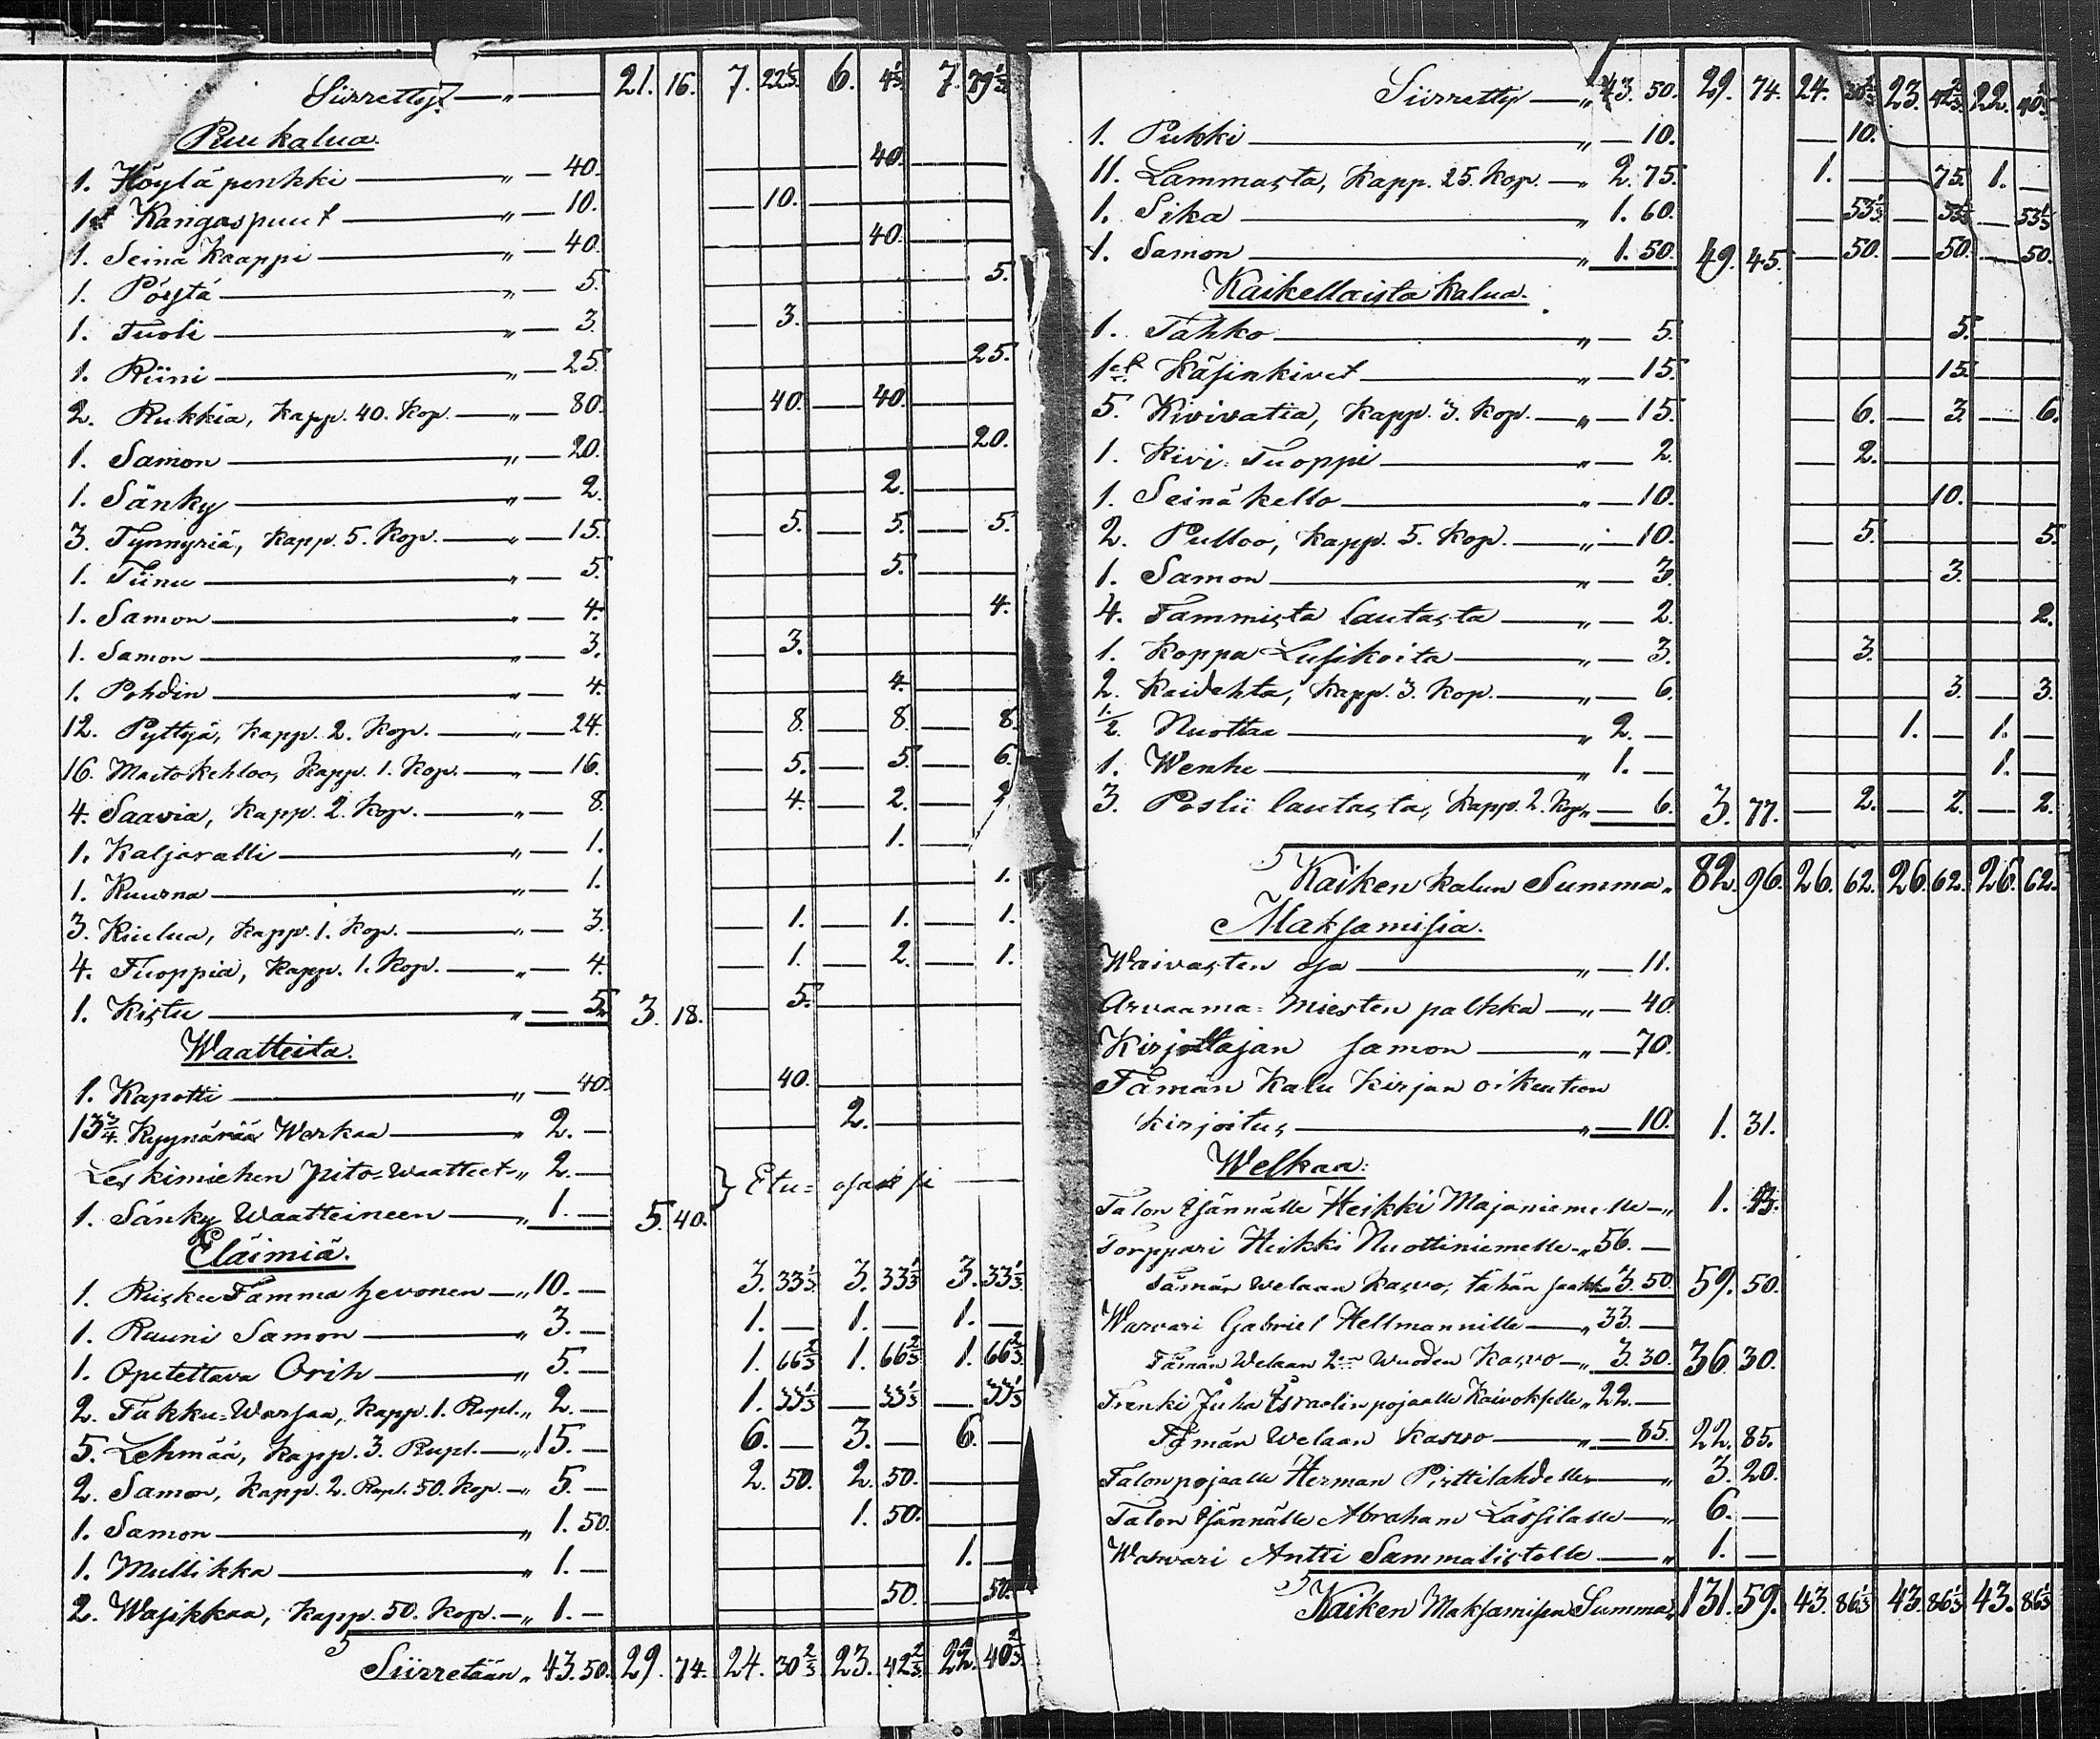 Siirrettyt — „ — 21. 16. 7. 22⅓ 6. 4⅓ 7. 29⅓
Puukalua.
1. Höyläpenkki — „ — 40. — 40. —
1et Kangaspuut — „ — 10. — 10. —
1. Seinä Kaappi — „ — 40. — 40. —
1. Pöytä — „ — 5. — 5.
1. Tuoli — „ — 3. — 3. —
1. Riini — „ — 25. — 25.
2. Rukkia, Kapp. 40. Kop. — „ — 80. — 40. — 40. —
1. Samon — „ — 20. — 20.
1. Sänky — „ — 2. — 2. —
3. Tynnyriä, Kapp. 5. Kop. — „ — 15. — 5. — 5. — 5.
1. Tiinu — „ — 5. — 5. —
1. Samon — „ — 4. — 4.
1. Samon — „ — 3. — 3. —
1. Pohdin — „ — 4. — 4. —
12. Pyttyä, Kapp. 2. Kop. — „ — 24. — 8. — 8. — 8.
16. Maitokehloo, Kapp. 1. Kop. — „ — 16. — 5. — 5. — 6.
4. Saavia, Kapp. 2. Kop. — „ — 8. — 4. — 2. — 2.
1. Kaljaratti — „ — 1. — 1. —
1. Kuurna — „ — 1. — 1.
3. Kiulua, Kapp. 1. Kop. — „ — 3. — 1. — 1. — 1.
4. Tuoppia, Kapp. 1. Kop. — „ — 4. — 1. — 2. — 1.
1. Kistu — „ — 5. 3. 18. — 5. —
Waatteita.
1. Kapotti — „ — 40. — 40. —
13¾ Kyynärää Warkaa — „ 2. — 2. —
Leskimiehen Pito-waatteet „ 2. — } Etu= osaksi —
1. Sänky Waatteineen — „ 1. — 5. 40.
Eläimiä.
1. Ruskee Tamma hevonen — „ 10. — 3. 33⅓ 3. 33⅓ 3. 33⅓
1. Ruuni Samon — „ 3. — 1. — 1. — 1. —
1. Opetettava Orih — „ 5. — 1. 66⅔ 1. 66⅔ 1. 66⅔
2. Takku-Warsaa, Kapp. 1. Rupl. „ 2. — 1. 33⅓ — 33⅓ — 33⅓
5. Lehmää, Kapp. 3. Rupl. — „ 15. — 6. — 3. — 6. —
2. Samon, Kapp. 2. Rupl. 50. Kop. — „ 5. — 2. 50. 2. 50. —
1. Samon — „ 1. 50. — 1. 50. —
1. Mullikka — „ 1. — 1. —
2. Wasikkaa, Kapp. 50. Kop. — „ 1. — 50. — 50.
Siirretään „ 43. 50. 29. 74. 24. 30⅔ 23. 42⅔ 22. 40⅔
Siirrettyt — „ 43. 50. 29. 74. 24. 30⅔ 23. 42⅔ 22. 40⅔
1. Pukki — „ — 10. — 10. —
11. Lammasta, Kapp. 25. Kop. — „ 2. 75. 1. — 75. 1. —
1. Sika — „ 1. 60. — 53⅓ — 53⅓ — 53⅓
1. Samon — „ 1. 50. 49. 45. — 50. — 50. — 50.
Kaikellaista Kalua.
1. Tahko — „ — 5. — 5. —
1et Käsinkivet — „ — 15. — 15. —
5. Kivivatia, Kapp. 3. Kop. — „ — 15. — 6. — 3. — 6.
1. Kivi-Tuoppi — „ — 2. — 2. —
1. Seinäkello — „ — 10. — 10. —
2. Pulloo, Kapp. 5. Kop. — „ — 10. — 5. — 5.
1. Samon — „ — 3. — 3. —
4. Tammista lautasta — „ — 2. — 2.
1. Koppa Lusikoita — „ — 3. — 3. —
2. Kaidehta, Kapp. 3. Kop. — „ — 6. — 3. — 3.
½ Nuottaa — „ 2. — 1. — 1. —
1. Wenhe — „ 1. — 1. —
3. Poslii lautasta, Kapp. 2. Kop. „ — 6. 3. 77. — 2. — 2. — 2.
Kaiken kalun Summa „ 82. 96. 26. 62. 26. 62. 26. 62.
Maksamisia.
Waivasten osa — „ — 11.
Arvaama-Miesten palkka — „ — 40.
Kirjottajan samon — „ — 70.
Tämän Kalu kirjan oikeuteen
kirjoitus — „ — 10. 1. 31.
Welkaa:
Talon Isännälle Heikki Majaniemelle — „ 1. 43.
Torppari Heikki Nuottiniemelle — „ 56. —
Tämän welaan Kaswo, tähän saakka 3. 50. 59. 50.
Warvari Gabriel Hellmannille — „ 33. —
Tämän Welaan 2en Wuoden Kaswo — „ 3. 30. 36 30.
Frenki Juha Israelinpojaalle „ 22. —
Tämän Welaan Kaswo — „ — 85. 22. 85.
Talonpojaalle Herman Pirttilahdelle — „ 3. 20.
Talon Isännälle Abraham Lassilalle — „ 6. —
Warvari Antti Sammalistolle — „ 1. —
Kaiken Maksamisen Summa „ 131. 59. 43. 86⅓ 43. 86⅓ 43. 86⅓